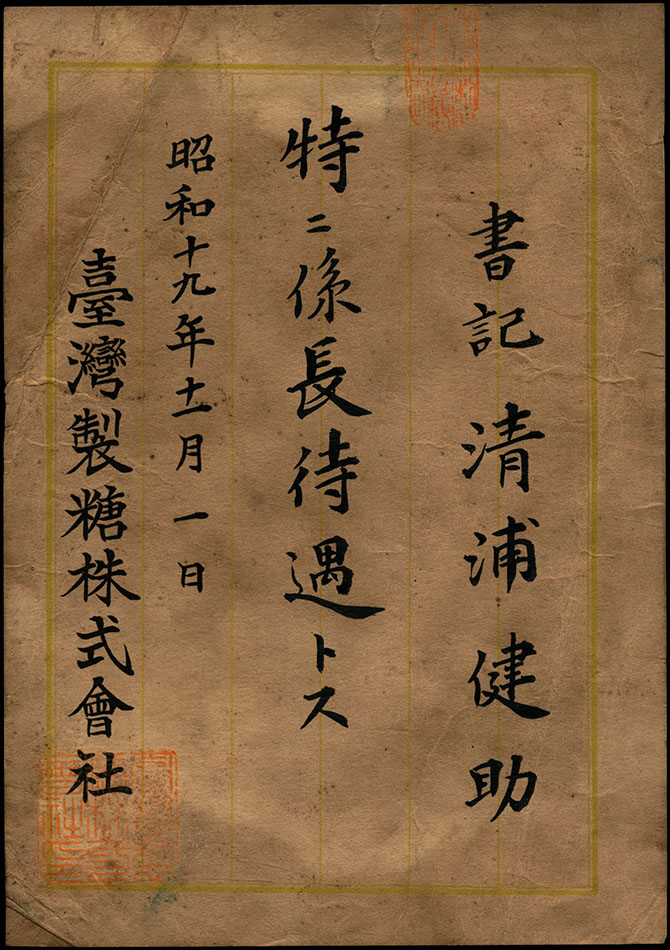 書記 清浦健助
特ニ係長待遇トス
昭和十九年十一月一日
臺灣製糖株式會社